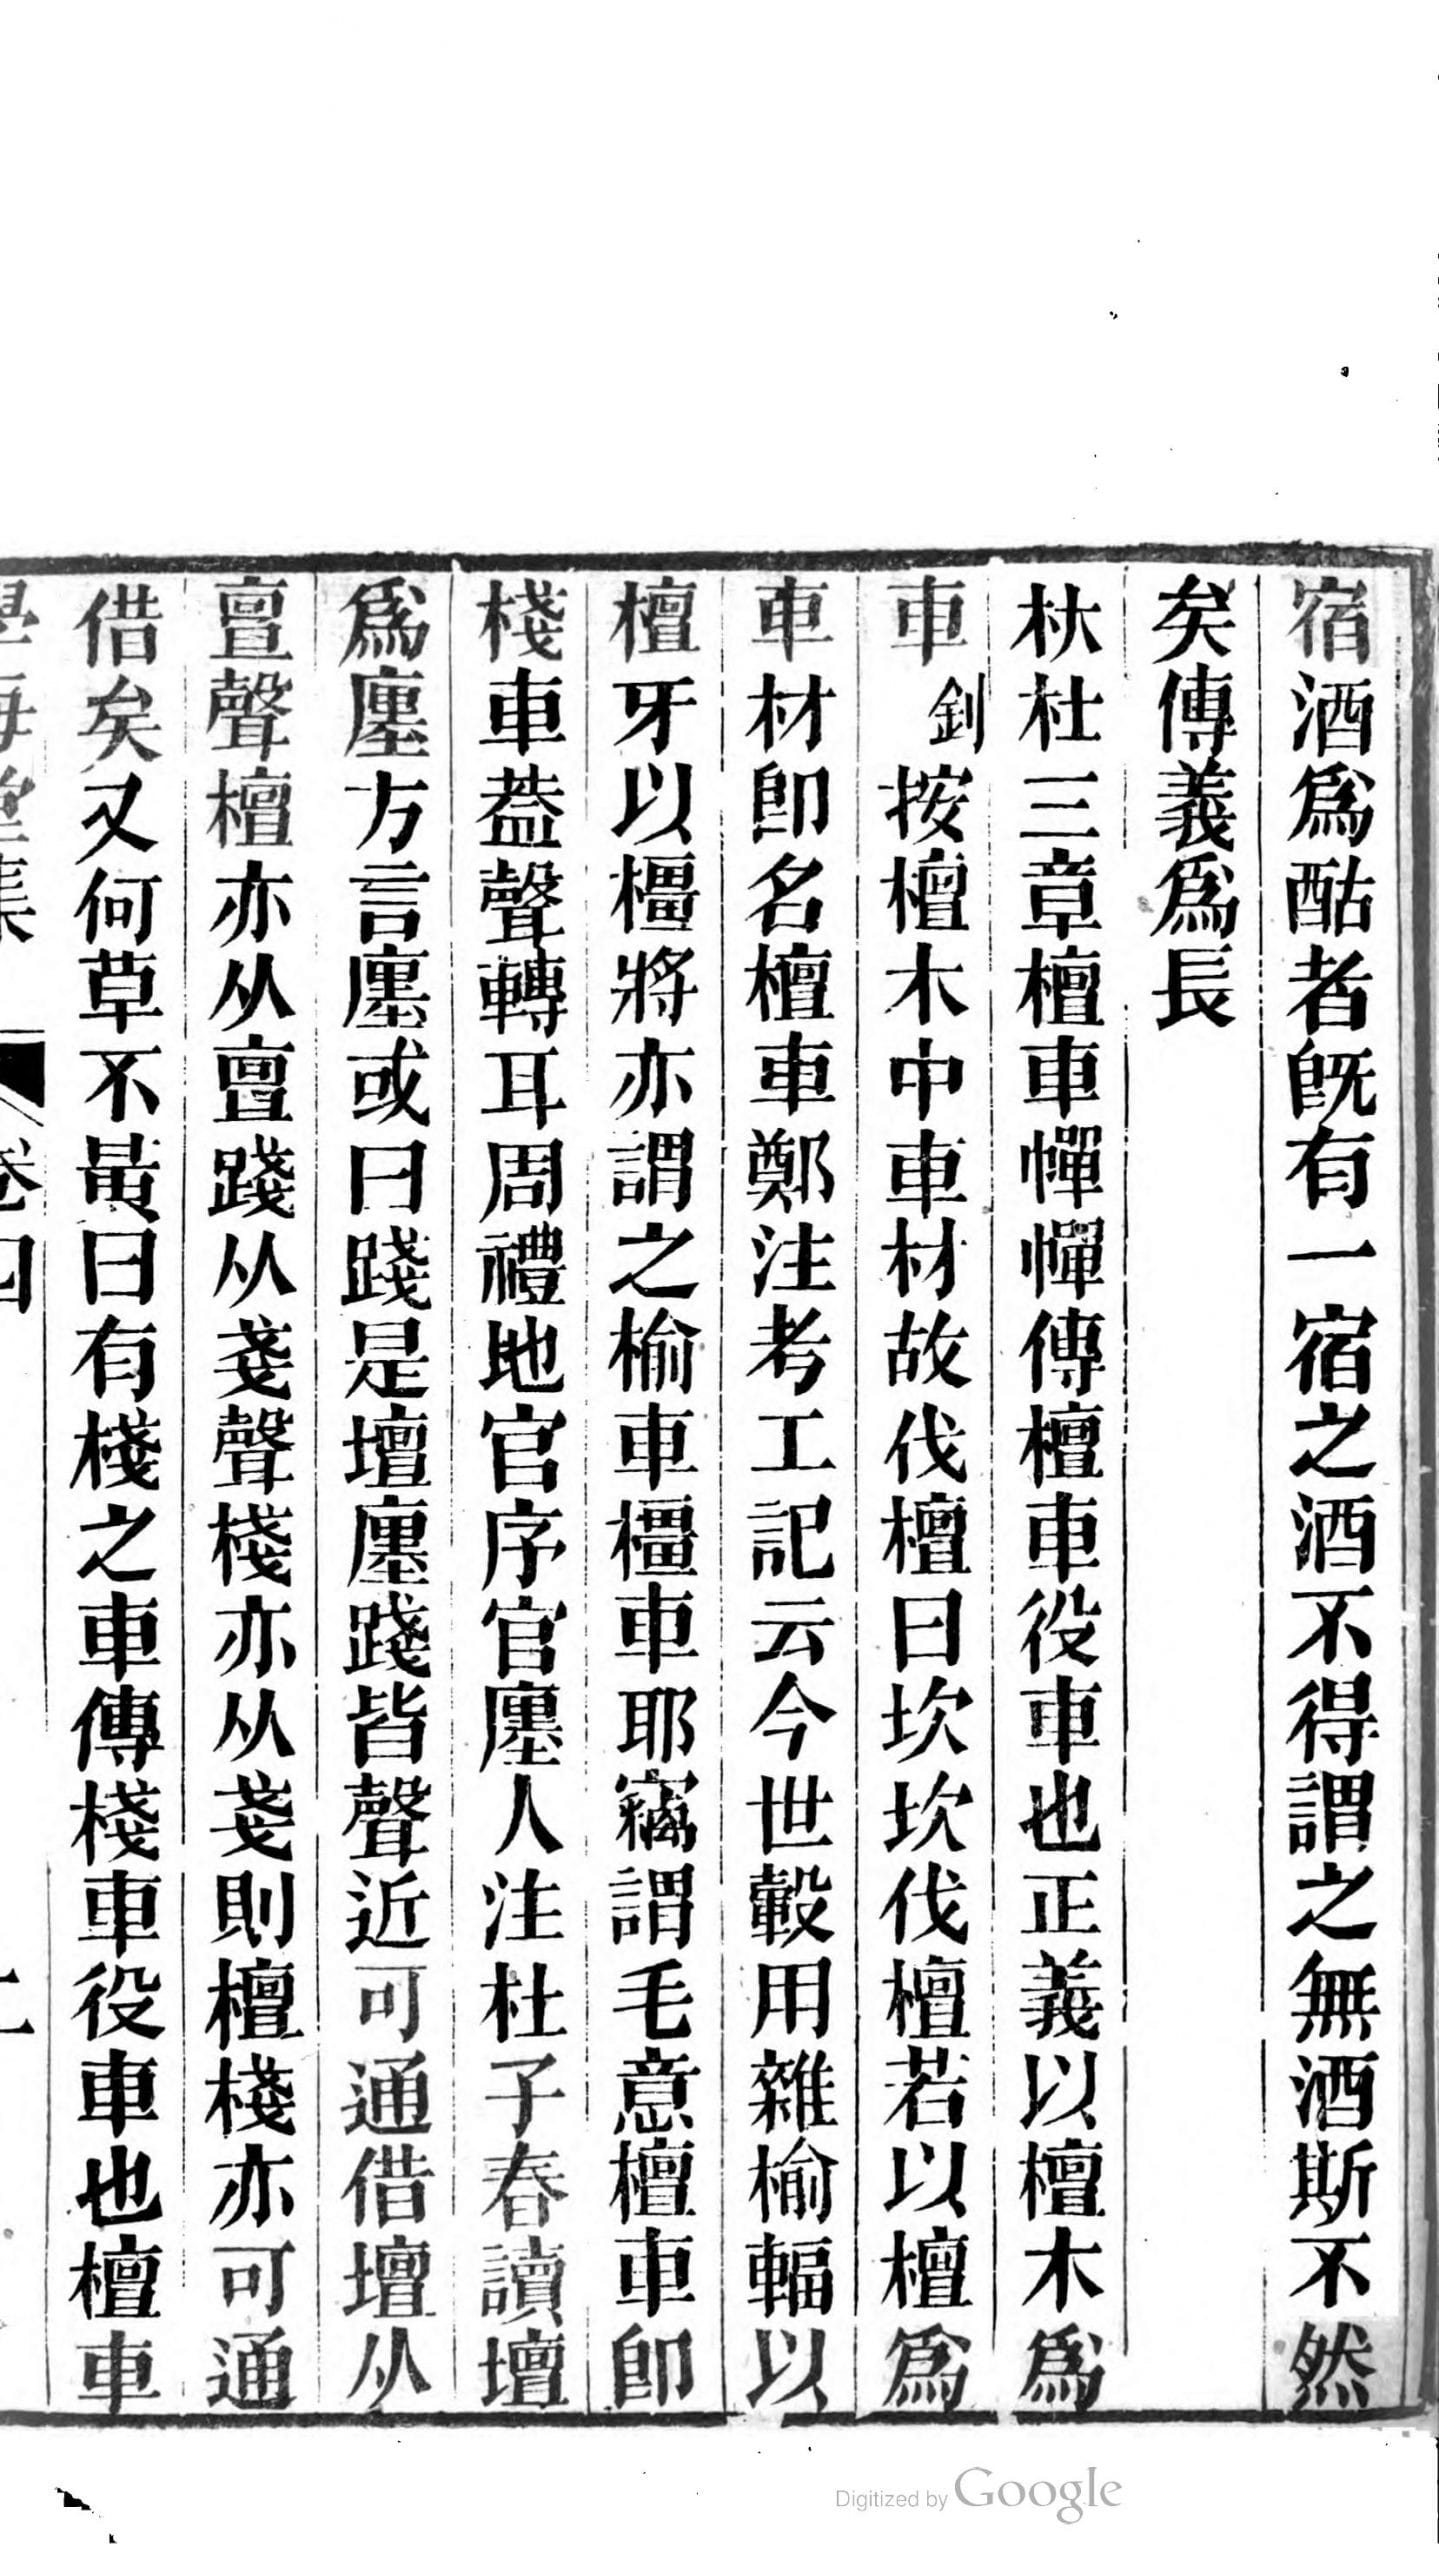 宿酒爲酤者旣有一宿之酒不得謂之無酒斯不然
矣傳義爲長
杕杜三章檀車幝幝傳檀車役車也正義以檀木爲
車釗按檀木中車材故伐檀曰坎坎伐檀若以檀爲
車材卽名檀車鄭注考工記云今世轂用雜榆輻以
檀牙以橿將亦謂之榆車橿車耶竊謂毛意檀車卽
棧車葢聲轉耳周禮地官序官廛人注杜子春讀壇
爲廛方言廛或曰踐是壇廛踐皆聲近可通借壇从
亶聲檀亦从亶踐从戔聲棧亦从戔則檀棧亦可通
借矣又何草不黃曰有棧之車傳棧車役車也檀車
學海堂集 卷四
Digitized by Google